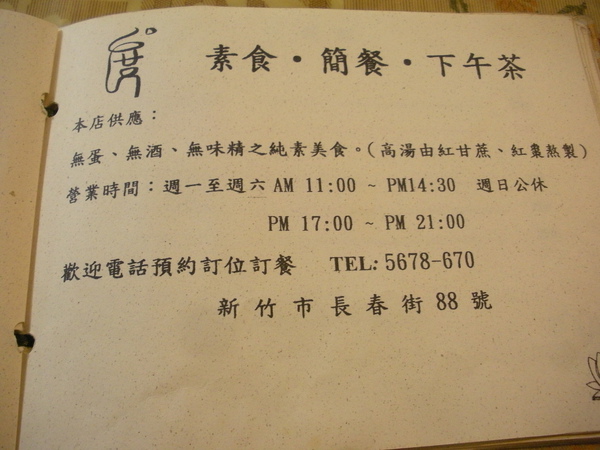 素食·簡餐·下午茶
本店供應：
無蛋、無酒、無味精之純素美食。(高湯由紅甘蔗、紅棗熬製)
營業時間：週一至週六 AM 11:00 ~ PM14:30 週日公休
PM 17:00 ~ PM 21:00
歡迎電話預約訂位訂餐 TEL: 5678-670
新竹市長春街 88 號